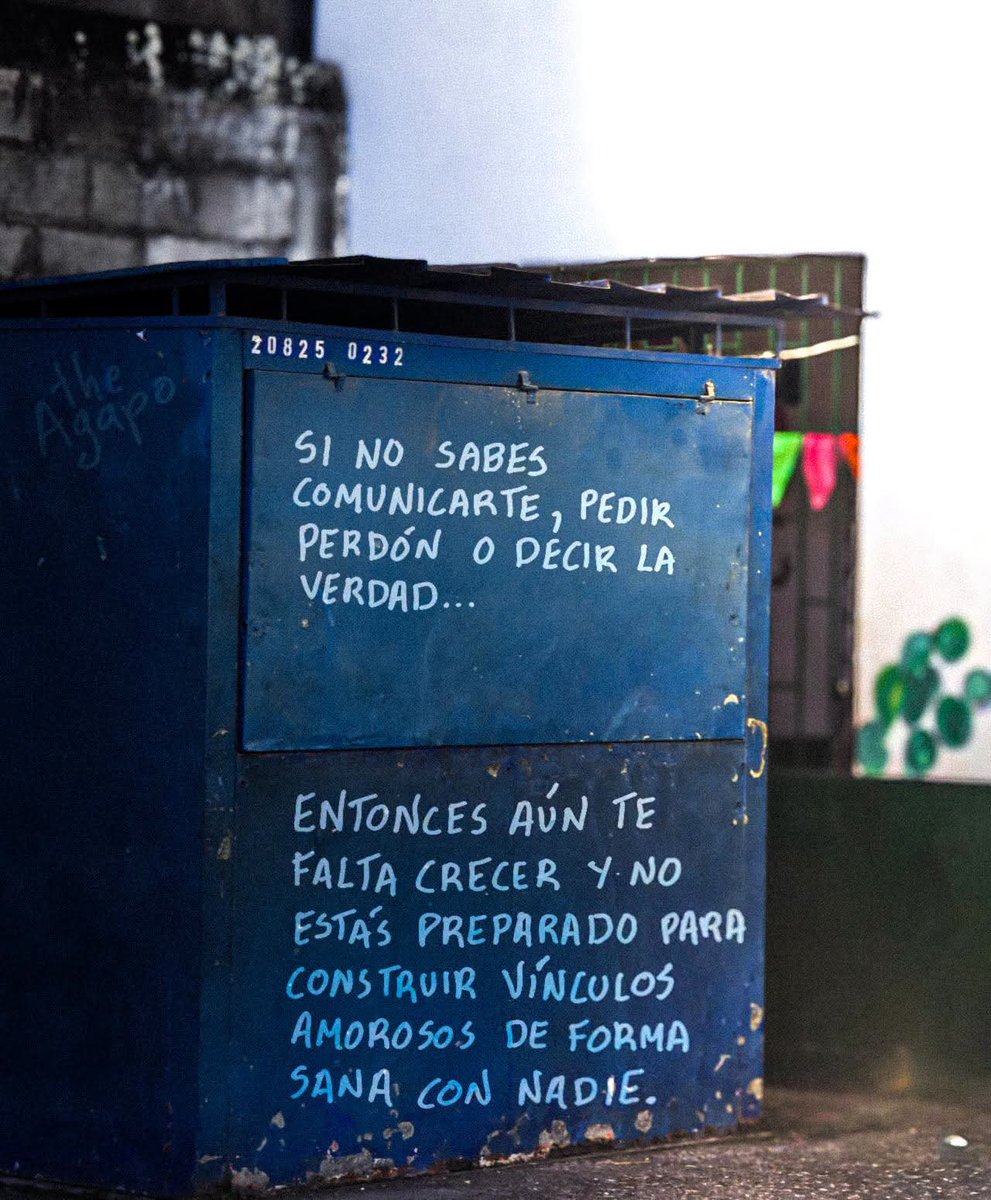 20825 0232
the
Agapo
SI NO SABES
COMUNICARTE, PEDIR
PERDÓN O DECIR LA
VERDAD...
ENTONCES AÚN TE
FALTA CRECER Y NO
ESTÁS PREPARADO PARA
CONSTRUIR VÍNCULOS
AMOROSOS DE FORMA
SANA CON NADIE.